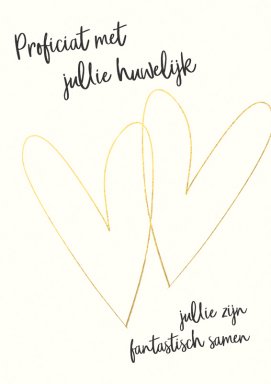 Proficiat met
jullie huwelijk
jullie zijn
fantastisch samen